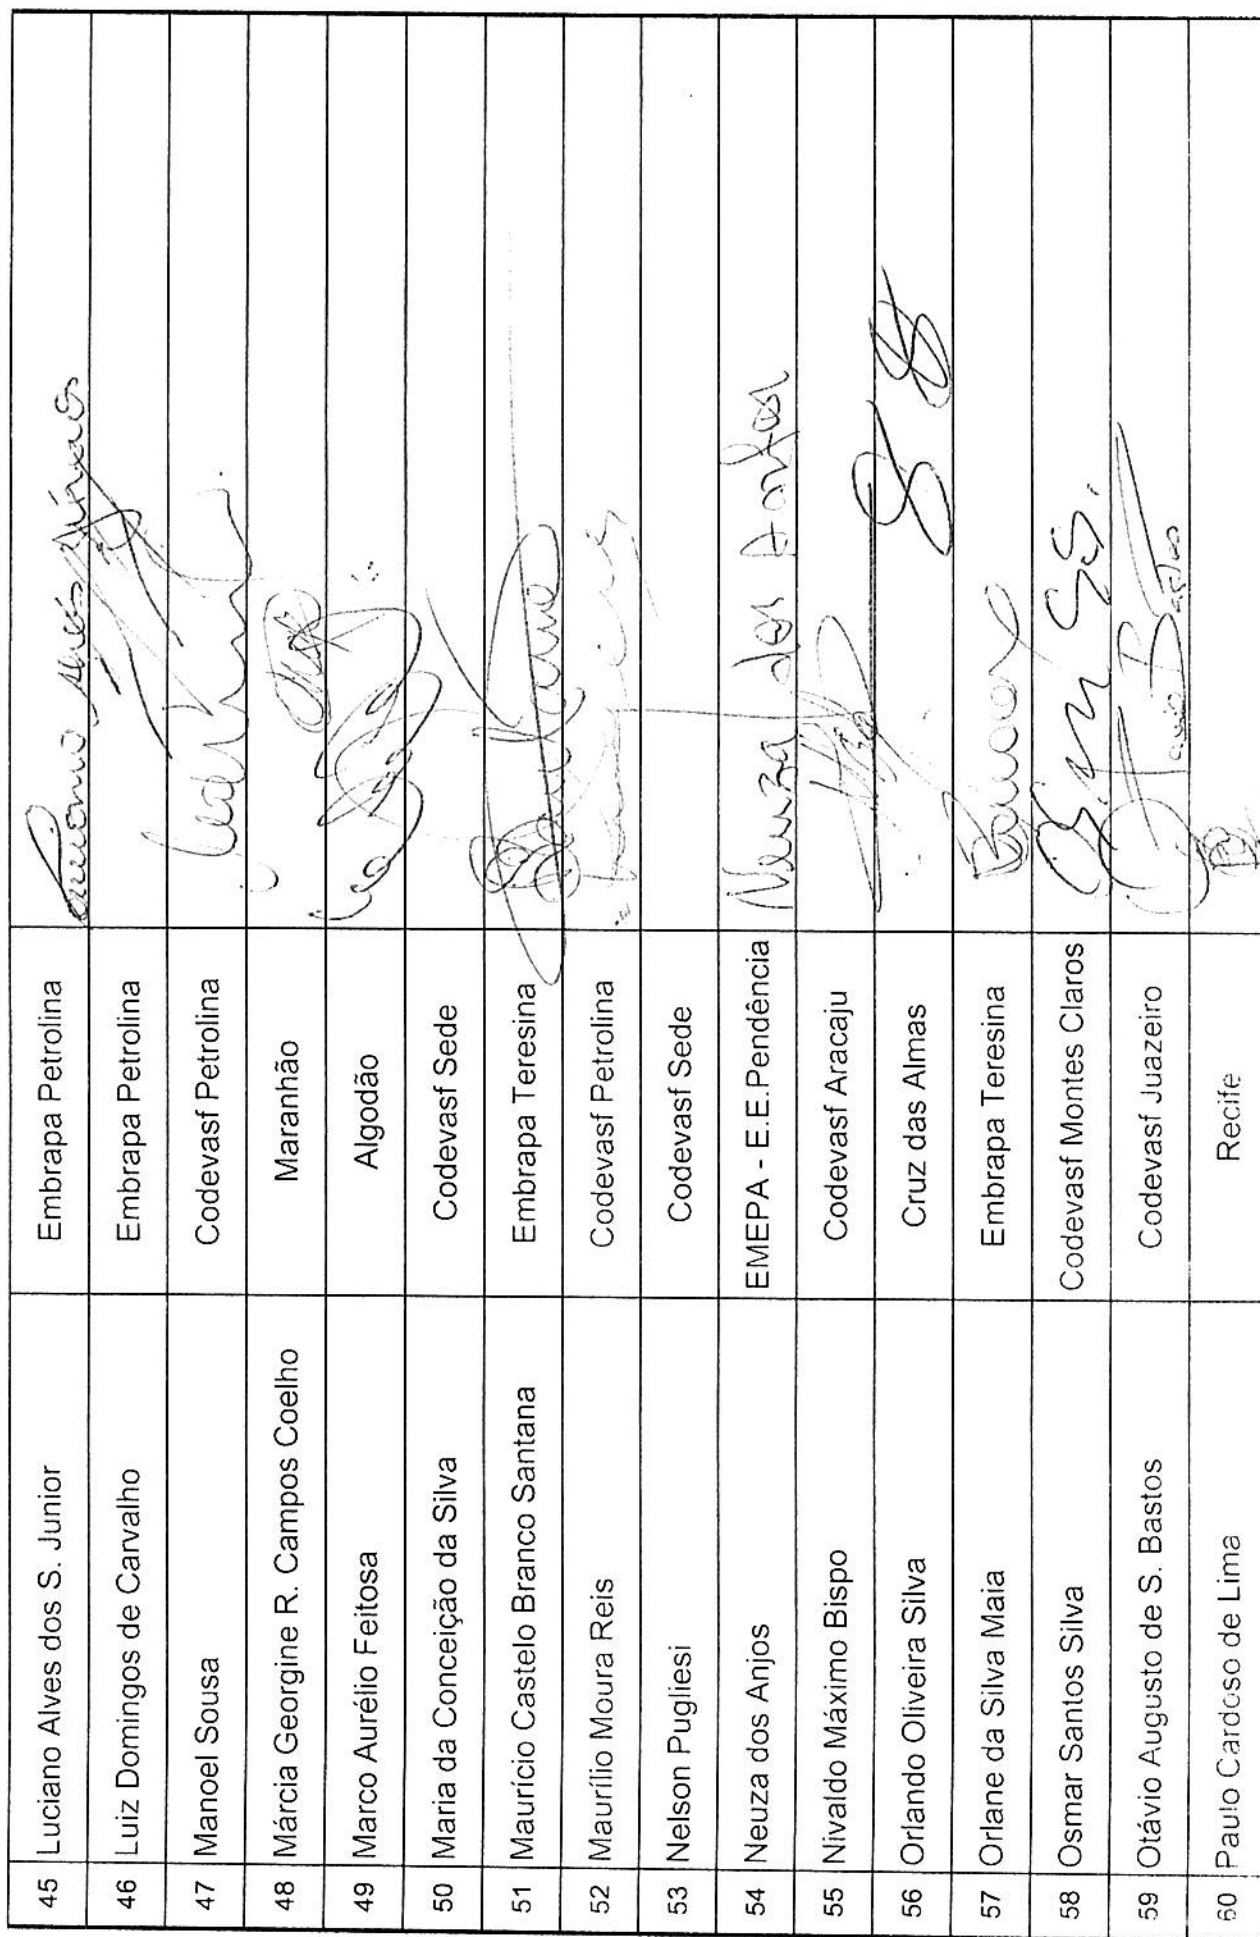 45 Luciano Alves dos S. Junior Embrapa Petrolina
46 Luiz Domingos de Carvalho Embrapa Petrolina
47 Manoel Sousa Codevasf Petrolina
48 Márcia Georgine R. Campos Coelho Maranhão
49 Marco Aurélio Feitosa Algodão
50 Maria da Conceição da Silva Codevasf Sede
51 Maurício Castelo Branco Santana Embrapa Teresina
52 Maurílio Moura Reis Codevasf Petrolina
53 Nelson Pugliesi Codevasf Sede
54 Neuza dos Anjos EMEPA - E.E.Pendência Neuza dos Anjos
55 Nivaldo Máximo Bispo Codevasf Aracaju
56 Orlando Oliveira Silva Cruz das Almas
57 Orlane da Silva Maia Embrapa Teresina
58 Osmar Santos Silva Codevasf Montes Claros
59 Otávio Augusto de S. Bastos Codevasf Juazeiro
60 Paulo Cardoso de Lima Recife